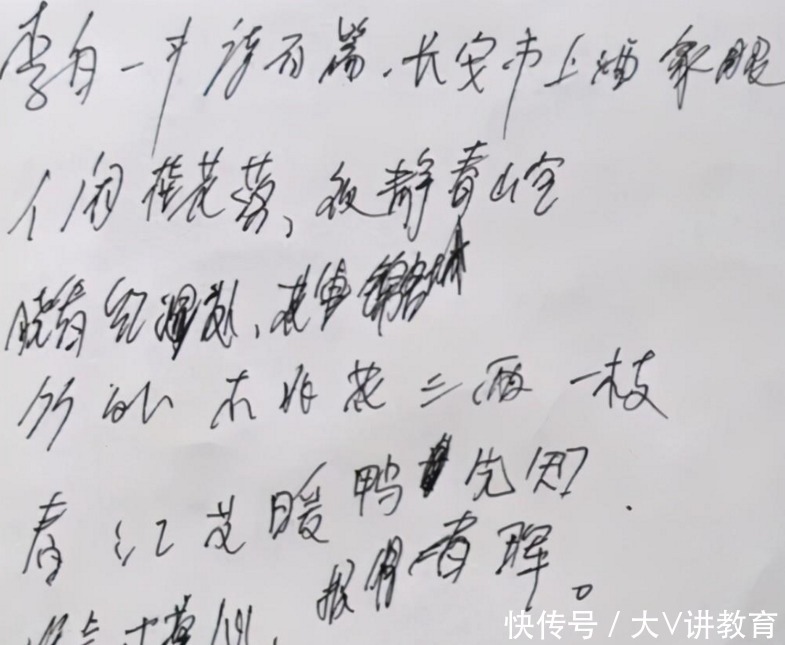 李白一斗诗百篇.长安市上酒家眠
人闲桂花落、夜静春山空
晓看红湿处、花重锦官城
竹外桃花三两枝
春江水暖鸭先知.
报得春晖。
快传号 / 大V讲教育